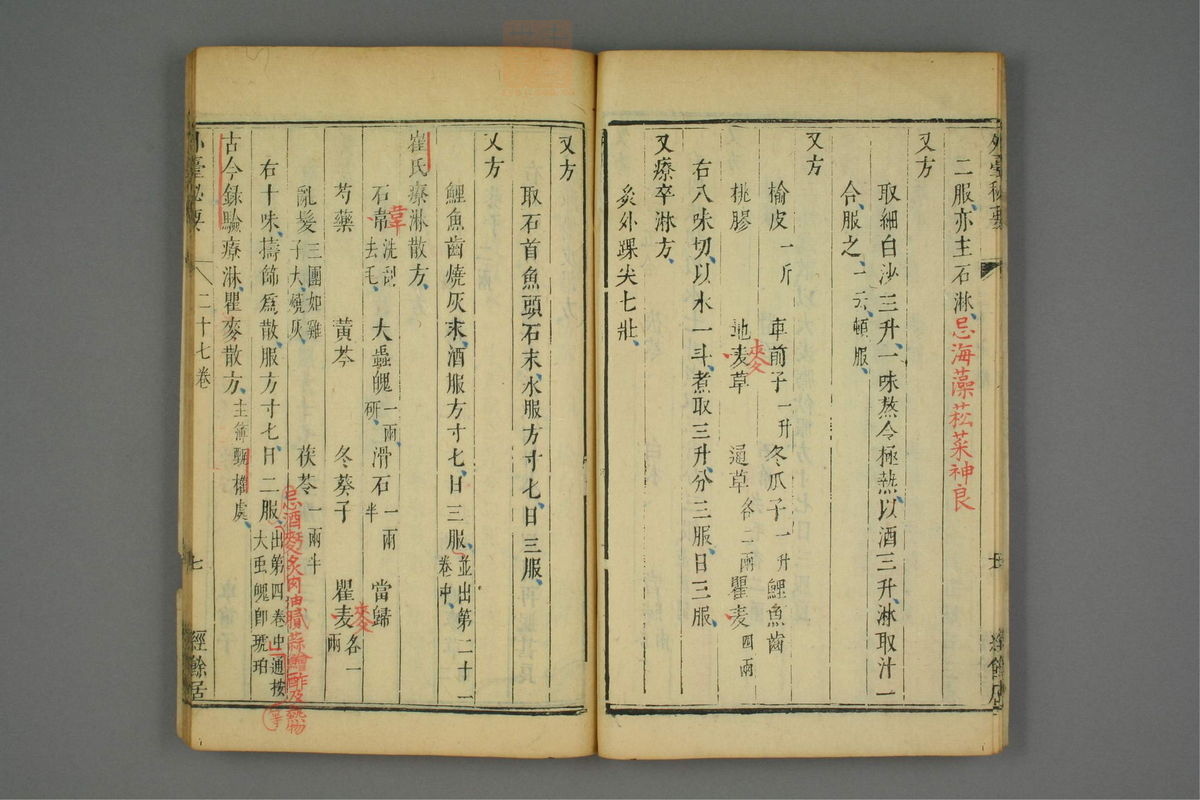 外臺秘要
二服亦主石淋忌海藻菘菜神良
又方
取細白沙三升一味熬令極熱以酒三升淋取汁一
合服之一云頓服
又方
榆皮一斤 車前子一升 冬瓜子一升 鯉魚齒
桃膠 地麦草 麥 通草各二兩 瞿麦四兩
右八味切以水一斗煮取三升分三服日三服
又療卒淋方
灸外踝尖七壯
又方
取石首魚頭石末水服方寸匕日三服
又方
鯉魚齒燒灰末酒服方寸匕日三服並出第二十一卷中
崔氏療淋散方
石帶 葦 洗刮去毛 大蟲魄一兩研 滑石一兩半 當歸
芍藥 黃芩 冬葵子 瞿麦 麥 各一兩
亂髮三團如雞子大燒灰 茯苓一兩半
右十味擣篩為散服方寸匕日二服出第四卷中通按大虫魄即琥珀
忌酒麥炙肉油膩蒜鱠酢及熱物等
古今錄驗療淋瞿麥散方主簿甄權處
外臺秘要 二十七卷 七 經餘居